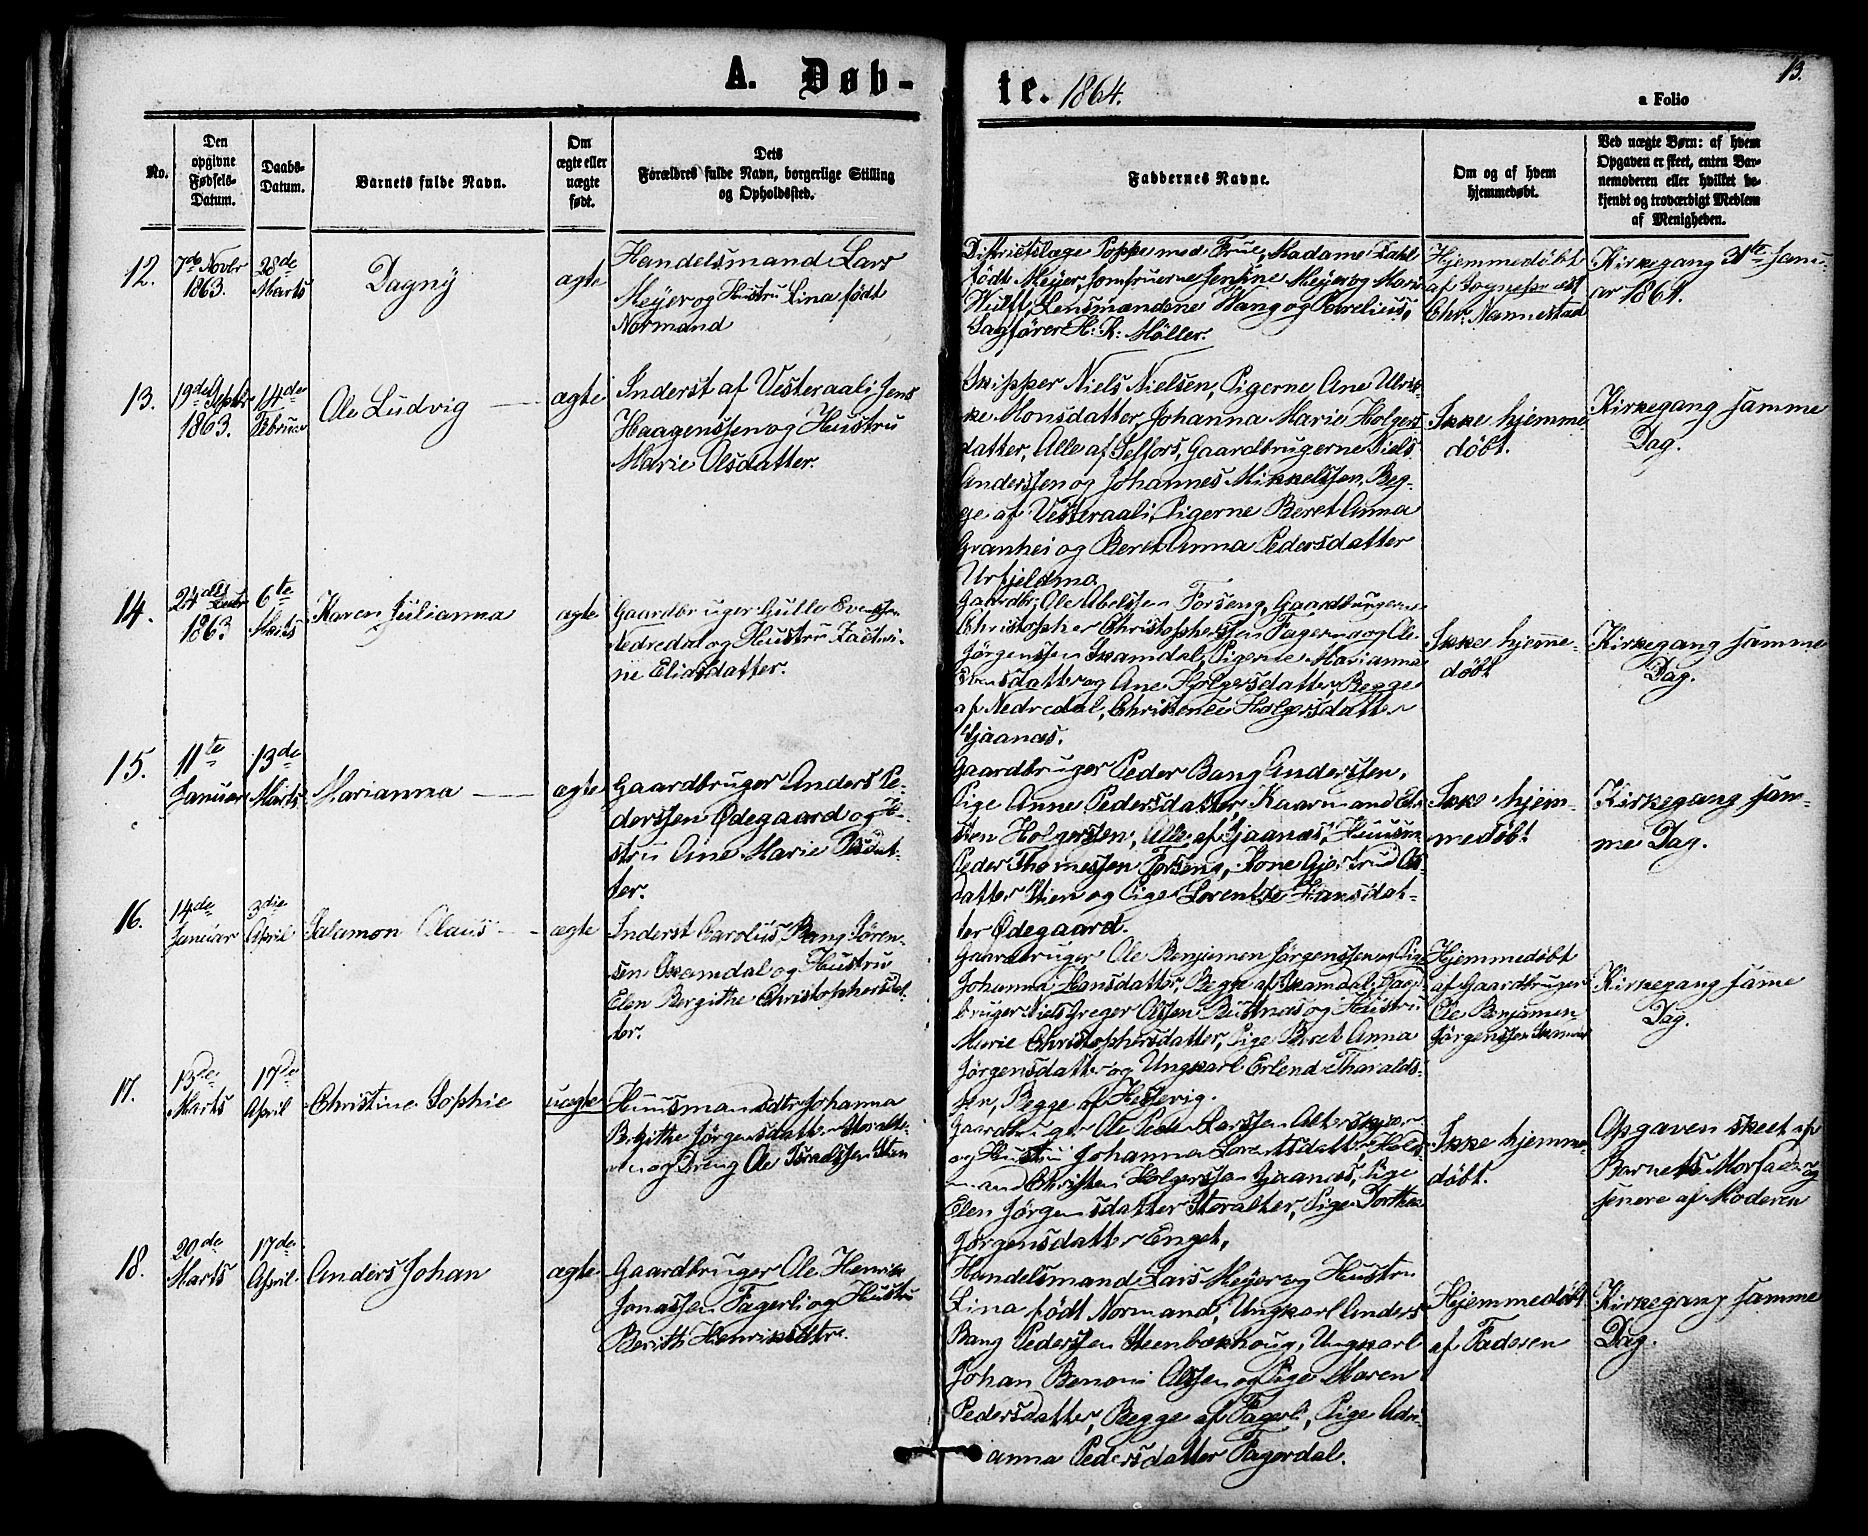 A. Døb-
te. 1864.
13.
a Folio
No.
Den
opgivne
Fødsels-
Datum.
Daabs-
Datum.
Barnets fulde Navn.
Om
ægte eller
uægte
født.
Dets
Forældres fulde Navn, borgerlige Stilling
og Opholdssted.
Faddernes Navne.
Om og af hvem
hjemmedøbt.
Ved uægte Børn: af hvem
Opgaven er skeet, enten Bar-
nemoderen eller hvilket be-
kjendt og troværdigt Medlem
af Menigheden.
12.
7de Novbr
1863.
28de
Marts
Dagny
ægte
Handelsmand Lars
Meyer og Hustru Lina født
Normand
Distrietslæge Poppe med Frue, Madame Dahl
født Meyer, Jomfruerne Jensine Meyer og Marie
Wulff, Lensmændene Wang og Aurelius,
Sagfører H. K: Møller.
Hjemmedøbt
af Sognepræst
Chr. Nannestad
Kirkegang 31te Janu-
ar 1864.
13.
19de Septbr
1863.
14de
Februar
Ole Ludvig
ægte
Inderst af Vesteraali Jens
Haagenssen og Hustru
Marie Olsdatter.
Skipper Niels Nielsen, Pigerne Ane Ulrik-
ke Monsdatter, Johanna Marie Holgers-
datter, Alle af Selfors, Gaardbrugerne Niels
Anderssen og Johannes Mikkelssen, Beg-
ge af Vesteraali, Pigerne Beret Anna
Granhei og Beret Anna Pedersdatter
Urfjeldmo
Ikke hjemme
døbt.
Kirkegang samme
Dag.
14.
24de
1863
6te
Marts
Karen Julianna
ægte
Gaardbruger Gullov Evensen
Nedredal og Hustru
ne Eliasdatter.
Gaardbr: Ole Abelssen Forseng, Gaardbrugerne
Christopher Christopherssen Fagermo og Ole
Jørgenssen Skamdal, Pigerne Marianna
datter og Ane Holgersdatter, Begge
af Nedredal, Christense Holgersdatter
Sjaanæs.
Ikke hjemme-
døbt
Kirkegang samme
Dag.
15.
11te
Januar
13de
Marts
Marianna
ægte
Gaardbruger Anders Pe-
derssen Ødegaard og Hu-
stru Ane Marie Olsdat-
ter.
Gaardbruger Peder Bang Anderssen,
Pige Anne Pedersdatter Kaarmand
Holgerssen, Alle af Sjaanæs, Huusm.
Peder Thomessen Forseng, Kone Gjertrud Ols-
datter Stien og Pige Lorentse Hansdat-
ter Ødegaard.
Ikke hjem-
medøbt
Kirkegang sam-
me Dag.
16.
14de
Januar
3die
April
Salamon Olaus
ægte
Inderst Carolus Bang Søren-
sen Skamdal og Hustru
Elen Bergithe Christophersdat-
ter.
Gaardbruger Ole Benjamen Jørgenssen og Pige
Johanna Hansdatter, Begge af Skamdal, Gaard-
bruger Niels Greger Olssen Bustnæs og Hustru
Marie Christophersdatter, Pige Beret Anna
Jørgensdatter og Ungkarl Erlend Tharalds-
sen, Begge af Hellervig.
Hjemmedøbt
af Gaardbruger
Ole Benjamen
Jørgenssen Skamdal
Kirkegang samme
Dag.
17.
13de
Marts
17de
April
Christine Sophie
uægte
Huusmandsdtr Johanna
Brigithe Jørgensdatter Storalte-
ren og Dreng Ole Israelssen Stien
Gaardbruger Ole Peder Larssen Alterskjær
og Hustru Johanna Lorentsdatter,
Christen Holgerssen Sjaanæs, Pige
Elen Jørgensdatter Storalter, Pige Dorthea
Jørgensdatter Enget,
Ikke hjemme
døbt.
Opgaven skeet af
Barnets Morfader og
senere af Moderen
18.
20de
Marts
17de
April
Anders Johan
ægte
Gaardbruger Ole Henrik
Jonassen Fagerli og Hustru
Berith Henriksdtr.
Handelsmand Lars Meyer og Hustru
Lina født Normand, Ungkarl Anders
Bang Pederssen Steenbækhoug, Ungkarl
Johan Benoni Olssen og Pige Maren
Pedersdatter, Begge af Fagerli, Pige Adri-
anna Pedersdatter Fagerdal.
Hjemmedøbt
af Faderen
Kirkegang samme
Dag.